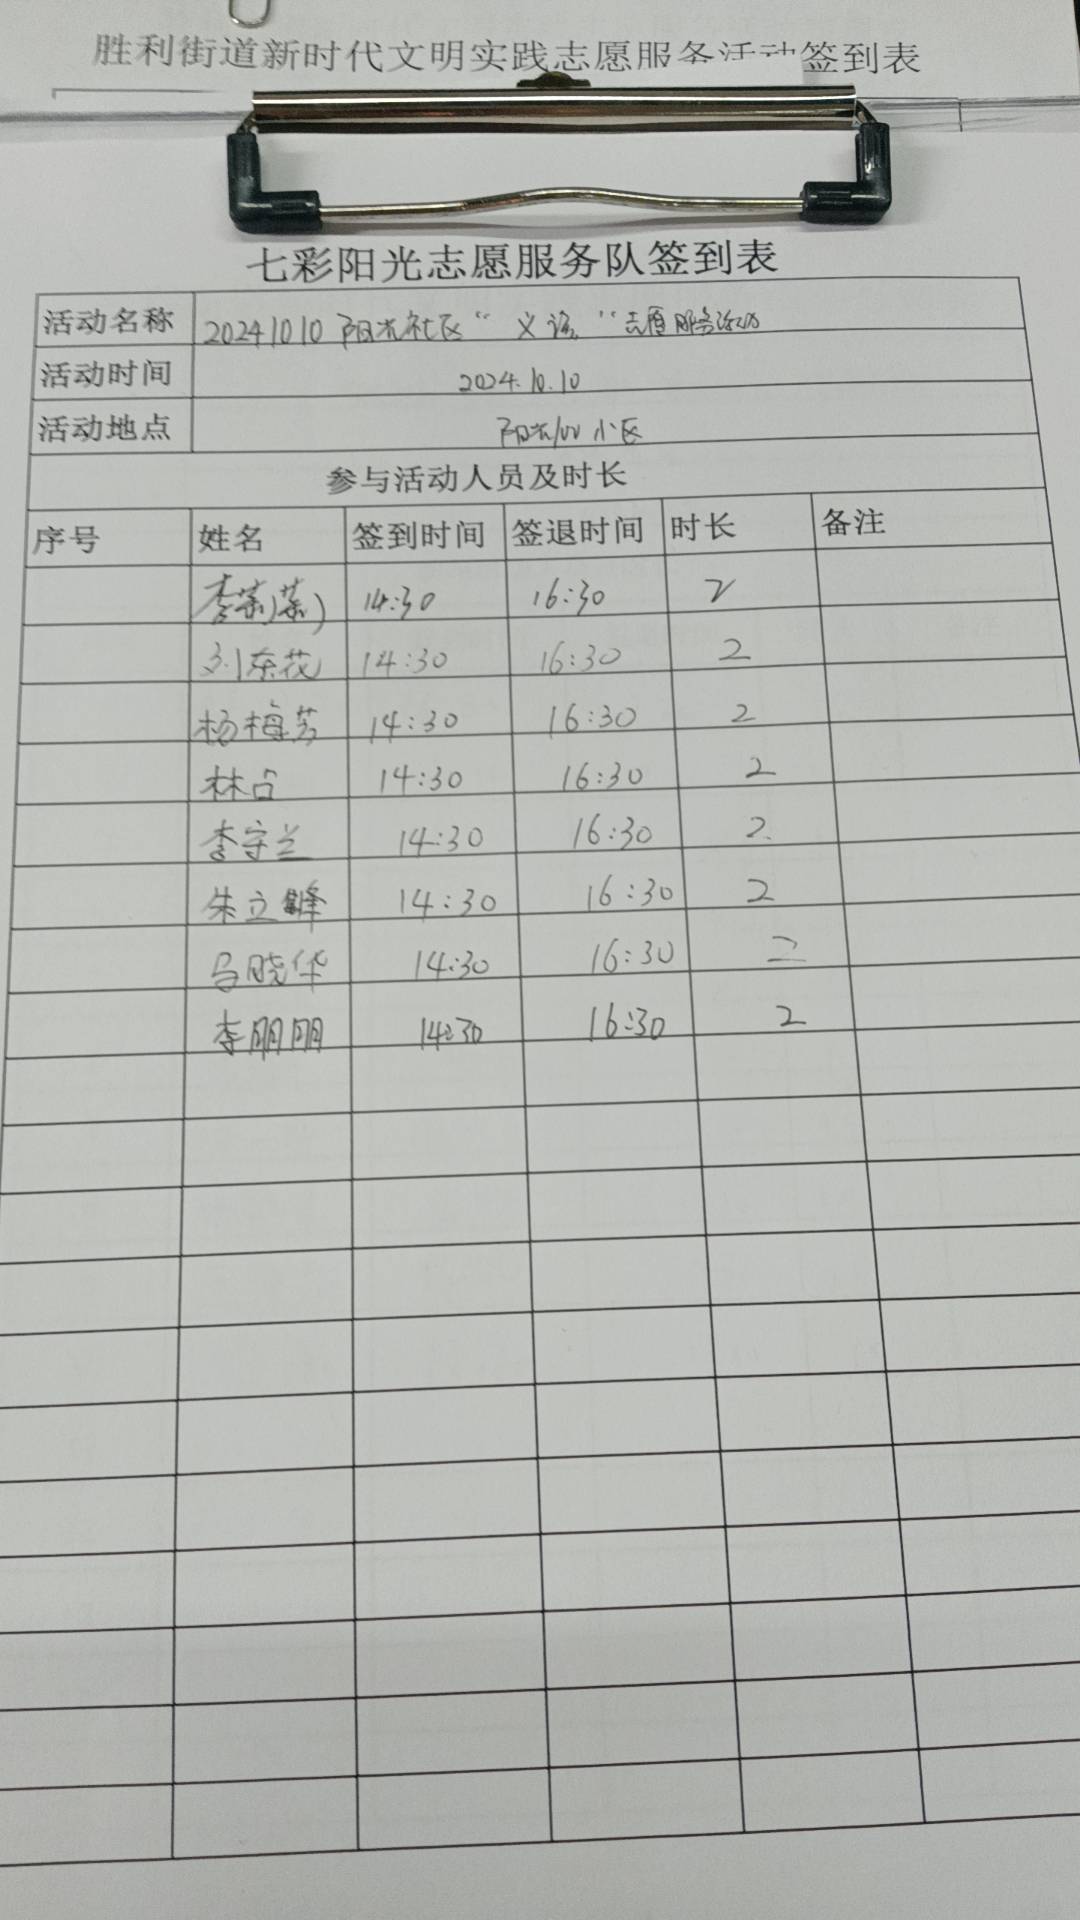 胜利街道新时代文明实践志愿服务活动签到表
七彩阳光志愿服务队签到表
活动名称 20241010 阳光社区“义诊”志愿服务活动
活动时间 2024.10.10
活动地点 阳光100小区
参与活动人员及时长
序号 姓名 签到时间 签退时间 时长 备注
李荣(荣) 14:30 16:30 2
刘东花 14:30 16:30 2
杨梅芳 14:30 16:30 2
林占 14:30 16:30 2
李守兰 14:30 16:30 2
朱立峰 14:30 16:30 2
马晓华 14:30 16:30 2
李朋朋 14:30 16:30 2